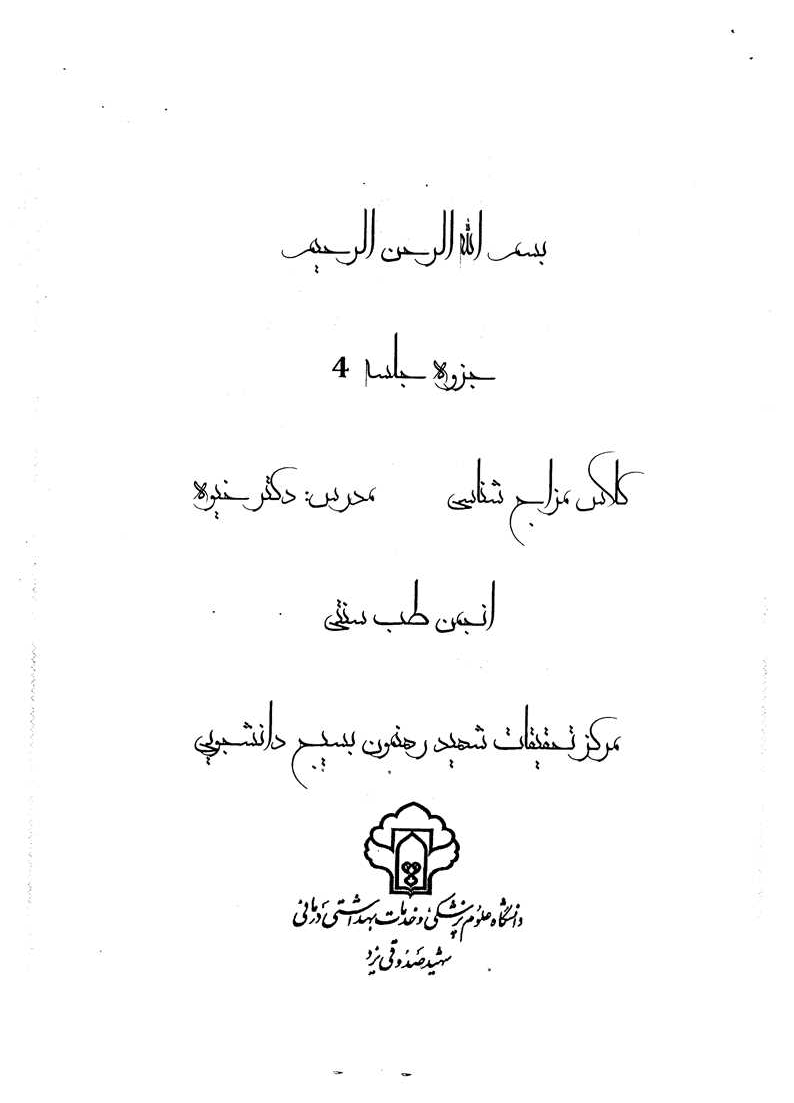 بسم الله الرحمن الرحیم
جزوه جلسه 4
کلاس مزاج شناسی مدرس: دکتر خیوه
انجمن طب سنتی
مرکز تحقیقات شهید رهنمون بسیج دانشجویی
دانشگاه علوم پزشکی و خدمات بهداشتی درمانی
شهید صدوقی یزد